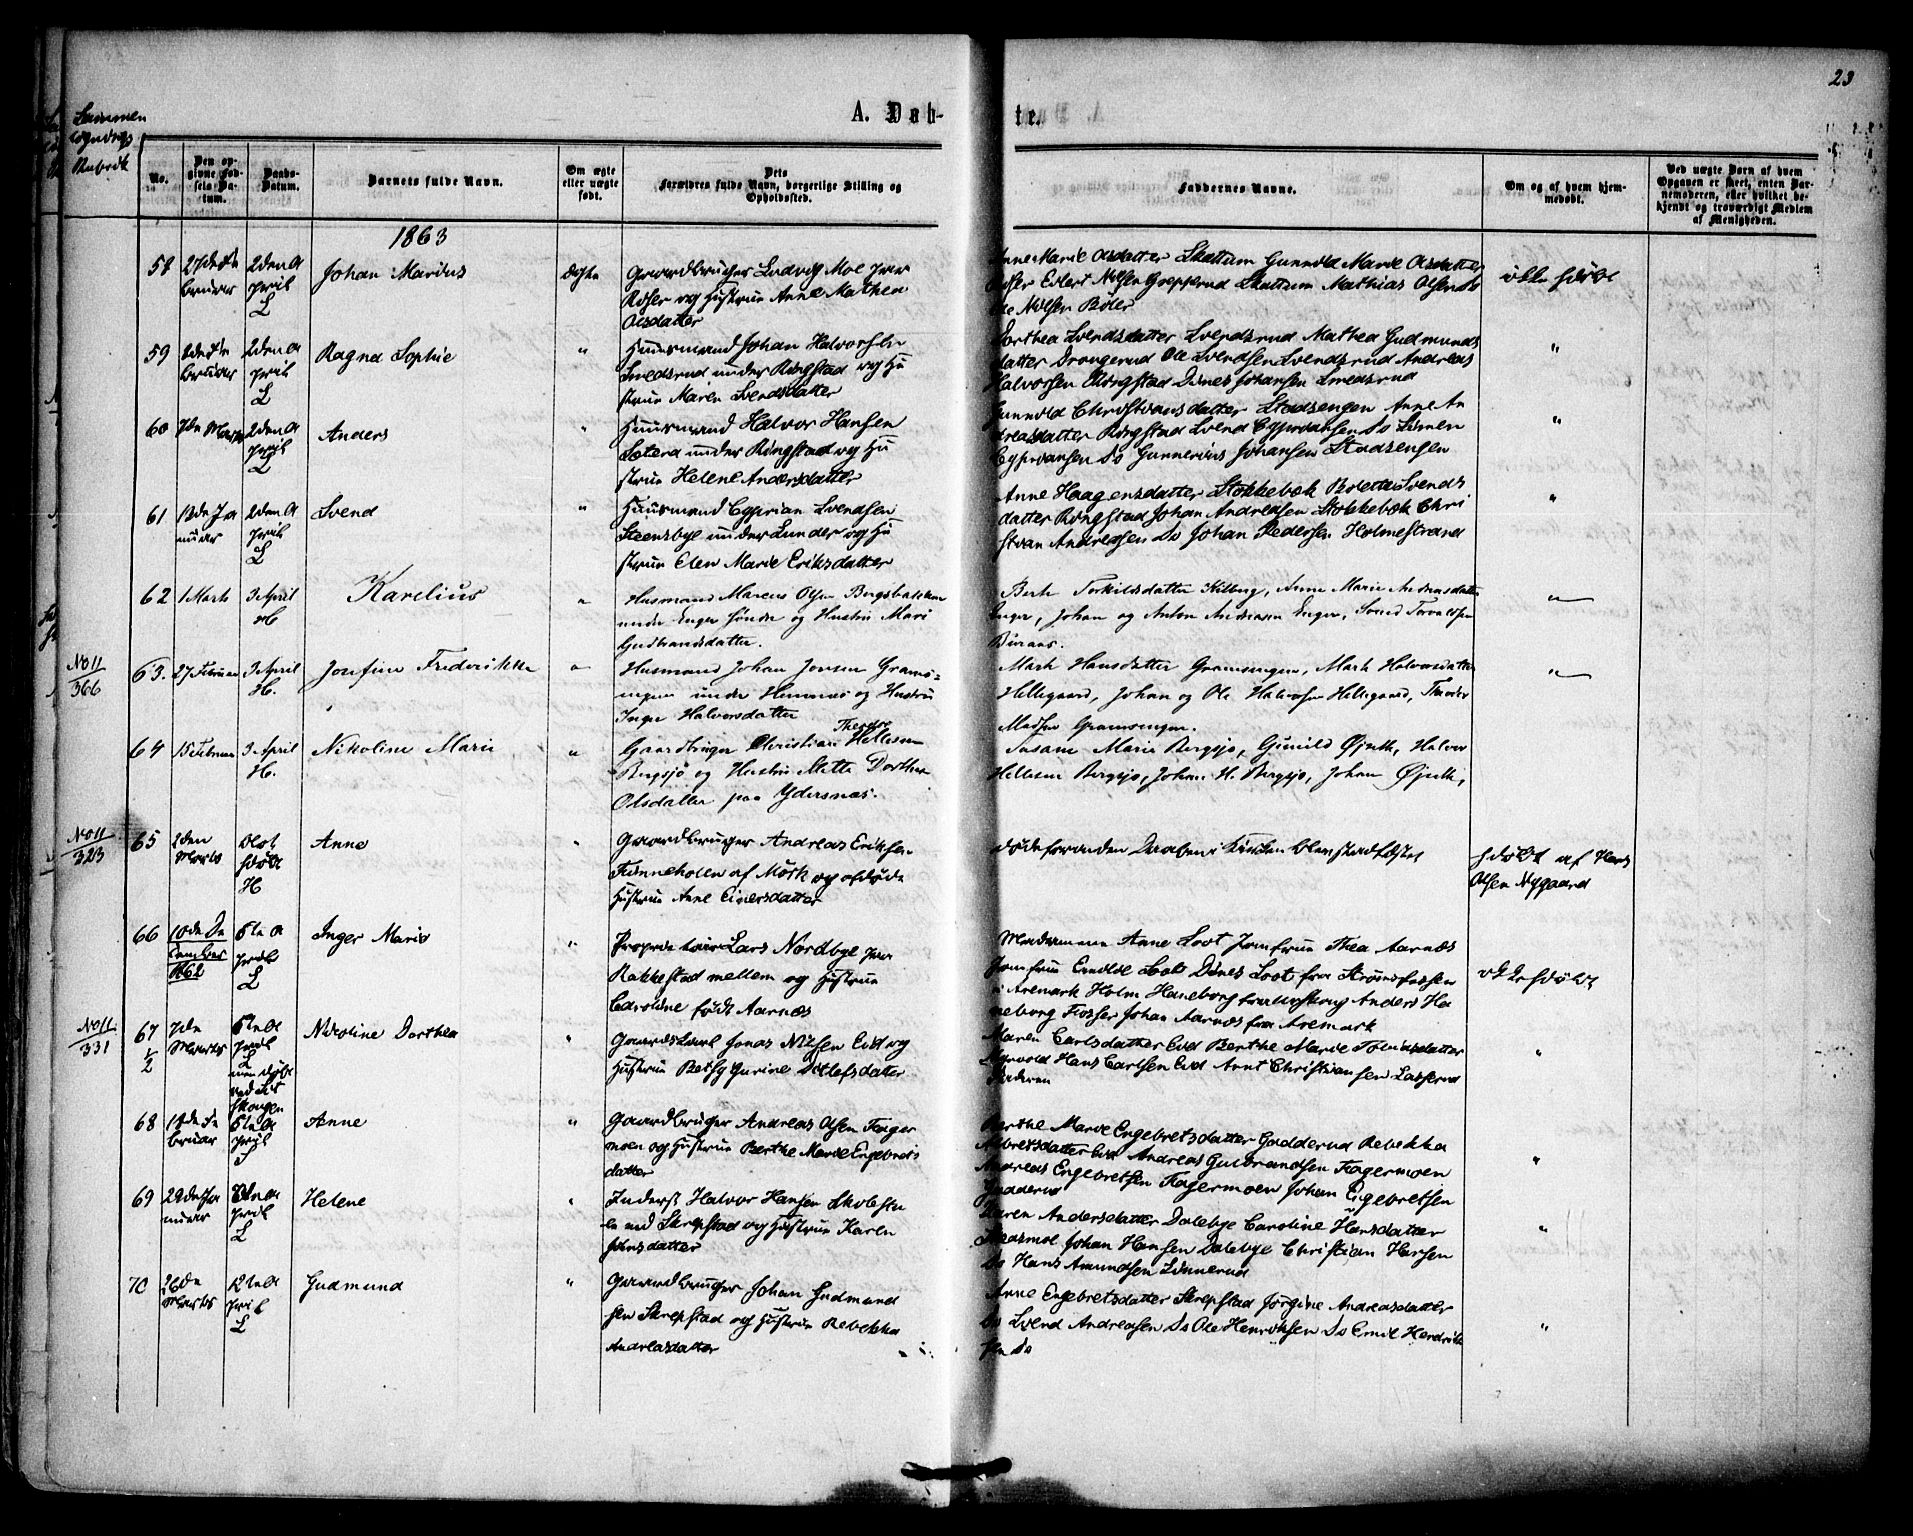 23
A. Døb-
te.
Sammen
Rubrik
No.
Den op-
givne Fød-
sels Da-
tum.
Daabs-
Datum.
Barnets fulde Navn.
Om ægte
eller uægte
født.
Dets
Forældres fulde Navn, borgerlige Stilling og
Opholdssted.
Faddernes Navne.
Om og af hvem hjem-
medøbt.
Ved uægte Børn af hvem
Opgaven er skeet, enten Bar-
nemoderen, eller hvilket be-
kjendt og troværdigt Medlem
af Menigheden.
1863
58
27de Fe
bruar
2den A
pril
L
Johan Marius
ægte
Gaardbruger Ludvig Moe paa
og Hustrue Anne Mathea
Olsdatter
Anne Marie Olsdatter Skattum Gunnild Marie Olsdatter
Edlert Nilsen Skattum Mathias Olsen Do
Ole Nilsen Bøler
ikke hdøbt
59
2de Fe
bruar
2den A
pril
L
Ragna Sophie
"
Huusmand Johan Halvorsen
Smedsrud under Ringstad og Hu
strue Maren Svendsdatter
Dorthea Svendsdatter Svendsrud Mathea Gudmunds
datter Drongerud Ole Svendsen Svendsrud Andreas
Halvorsen Ringstad Dines Johansen Smedsrud
"
60
7de Marts
2den A
pril
L
Anders
"
Huusmand Halvor Hansen
under Ringstad og Hu
strue Helene Andersdatter
Gunnild Christiansdatter Stadsengen Anne An
dreasdatter Ringstad Svend Cyprdansen Do Simen
Cyprdansen Do Gunnerius Johansen Stadsengen
"
61
13de Ja
nuar
2den A
pril
L
Svend
"
Huusmand Cyprian Svendsen
Steensbye under Lunder og Hu
strue Elen Marie Eriksdatter
Anne Haagensdatter Stokkebæk Bolette Svends
datter Ringstad Johan Andreasen Stokkebæk Chri
stian Andreasen Do Johan Pedersen Holmestrand
"
62
1 Marts
3 April
H
Karelius
"
Husmand Marcus Olsen Bergsbakken
under Enger søndre og Hustru Mari
Gudbrandsdatter.
Berte Torkildsdatter Kilbug, Anne Marie Andreasdatter
Enger, Johan og Anton Andreasen Enger, Svend Torvaldsen
Buraas.
"
No 11
366
63.
27 Februar
3 April
H.
Josefine Frederikke
"
Husmand Johan Jensen Grams-
ingen under Hemnæs og Hustru
Inger Halvorsdatter
Marte Hansdatter Gramsengen, Marte Halvorsdatter
Hellegaard, Johan og Ole Halvorsen Hellegaard, Theodor
Madsen Gramsengen.
"
64
15 Februar
3 April
H.
Nikoline Marie
"
Therese
Gaardbruger Christian Hellesen
Bergsjø og Hustru Mette Dorthea
Olsdatter paa Ydersnæs.
Susane Marie Bergsjø, Gunild Øjuth, Halvor
Hellesen Bergsjø, Johan H. Bergsjø, Johan Øjuth,
No 11
323
65
2den
Marts
Blot
hdøbt
H
Anne
"
Gaardbruger Andreas Eriksen
Tunneholen af Mork og afdøde
Hustrue Anne Einersdatter
døde forinden Daaben i Kirken blev stadfæstet
hdøbt af Hans
Olsen Nygaard
66
10de De
cember
1862
5te A
pril
L
Inger Marie
"
Proprietair Lars Nordbye paa
Rakkestad mellem og Hustrue
Caroline født Aarnæs
Madamme Anne Soot Jomfrue Thea Aarnæs
Jomfrue Emilde Soot Dines Soot fra Strømsfossen
i Aremark Holm Haneborg Anders Ha
neborg Fosser Johan Aarnæs fra Aremark
ikke hdøbt
No 11
331
67
½
7de
Marts
5te A
pril
L
men døbt
ved
Skougen
Nicoline Dorthea
"
Gaardskarl Jonas Nilsen Eid og
Hustrue Betsy Gurine Ditlefsdatter
Maren Carlsdatter Eid Berthe Marie
Hans Carlsen Eid Arnt Christiansen Lasserud
Faderen
"
68
18de Fe
bruar
5te A
pril
S
Anne
"
Gaardbruger Andreas Olsen Fager
moen og Hustrue Berthe Marie Engebrets
datter
Berthe Marie Engebretsdatter Gudderud Rebekka
Andreas Gulbrandsen Fagermoen
Andreas Engebretsen Fagermoen Johan Engebretsen
Gudderud
"
69
22de Ja
nuar
pril
L
Helene
"
Inderst Halvor Hansen
ved Skrepstad og Hustrue Karen
Jonsdatter
Karen Andersdatter Dalebye Caroline Hansdatter
Johan Hansen Dalebye Christian Hansen
Do Hans Amundsen Linnerud
"
70
26de
Marts
12te A
pril
L
Gudmund
"
Gaardbruger Johan Gudmund
sen Skrepstad og Hustrue Rebekka
Andreasdatter
Anne Engebretsdatter Skrepstad Jørgine Andreasdatter
Do Svend Andreasen Do Ole Henriksen Do Emil Hendrik
sen Do
"